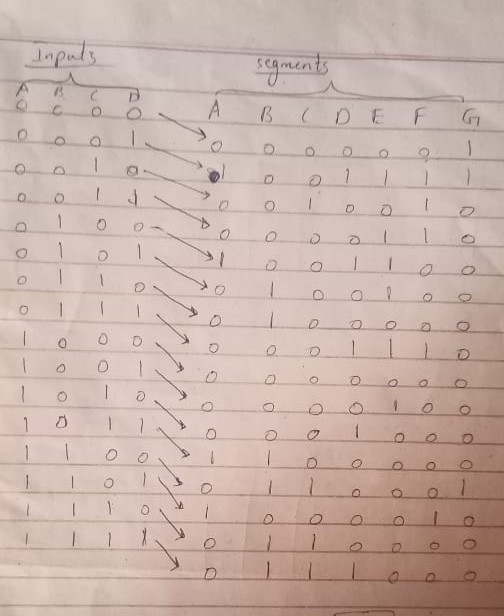 Inputs segments
A B C D A B C D E F G
0 0 0 0 → 0 0 0 0 0 0 1
0 0 0 1 → 1 0 0 1 1 1 1
0 0 1 0 → 0 0 1 0 0 1 0
0 0 1 1 → 0 0 0 0 1 1 0
0 1 0 0 → 1 0 0 1 1 0 0
0 1 0 1 → 0 1 0 0 1 0 0
0 1 1 0 → 0 1 0 0 0 0 0
0 1 1 1 → 0 0 0 1 1 1 0
1 0 0 0 → 0 0 0 0 0 0 0
1 0 0 1 → 0 0 0 0 1 0 0
1 0 1 0 → 0 0 0 1 0 0 0
1 0 1 1 → 1 1 0 0 0 0 0
1 1 0 0 → 0 1 1 0 0 0 1
1 1 0 1 → 1 0 0 0 0 1 0
1 1 1 0 → 0 1 1 0 0 0 0
1 1 1 1 → 0 1 1 1 0 0 0